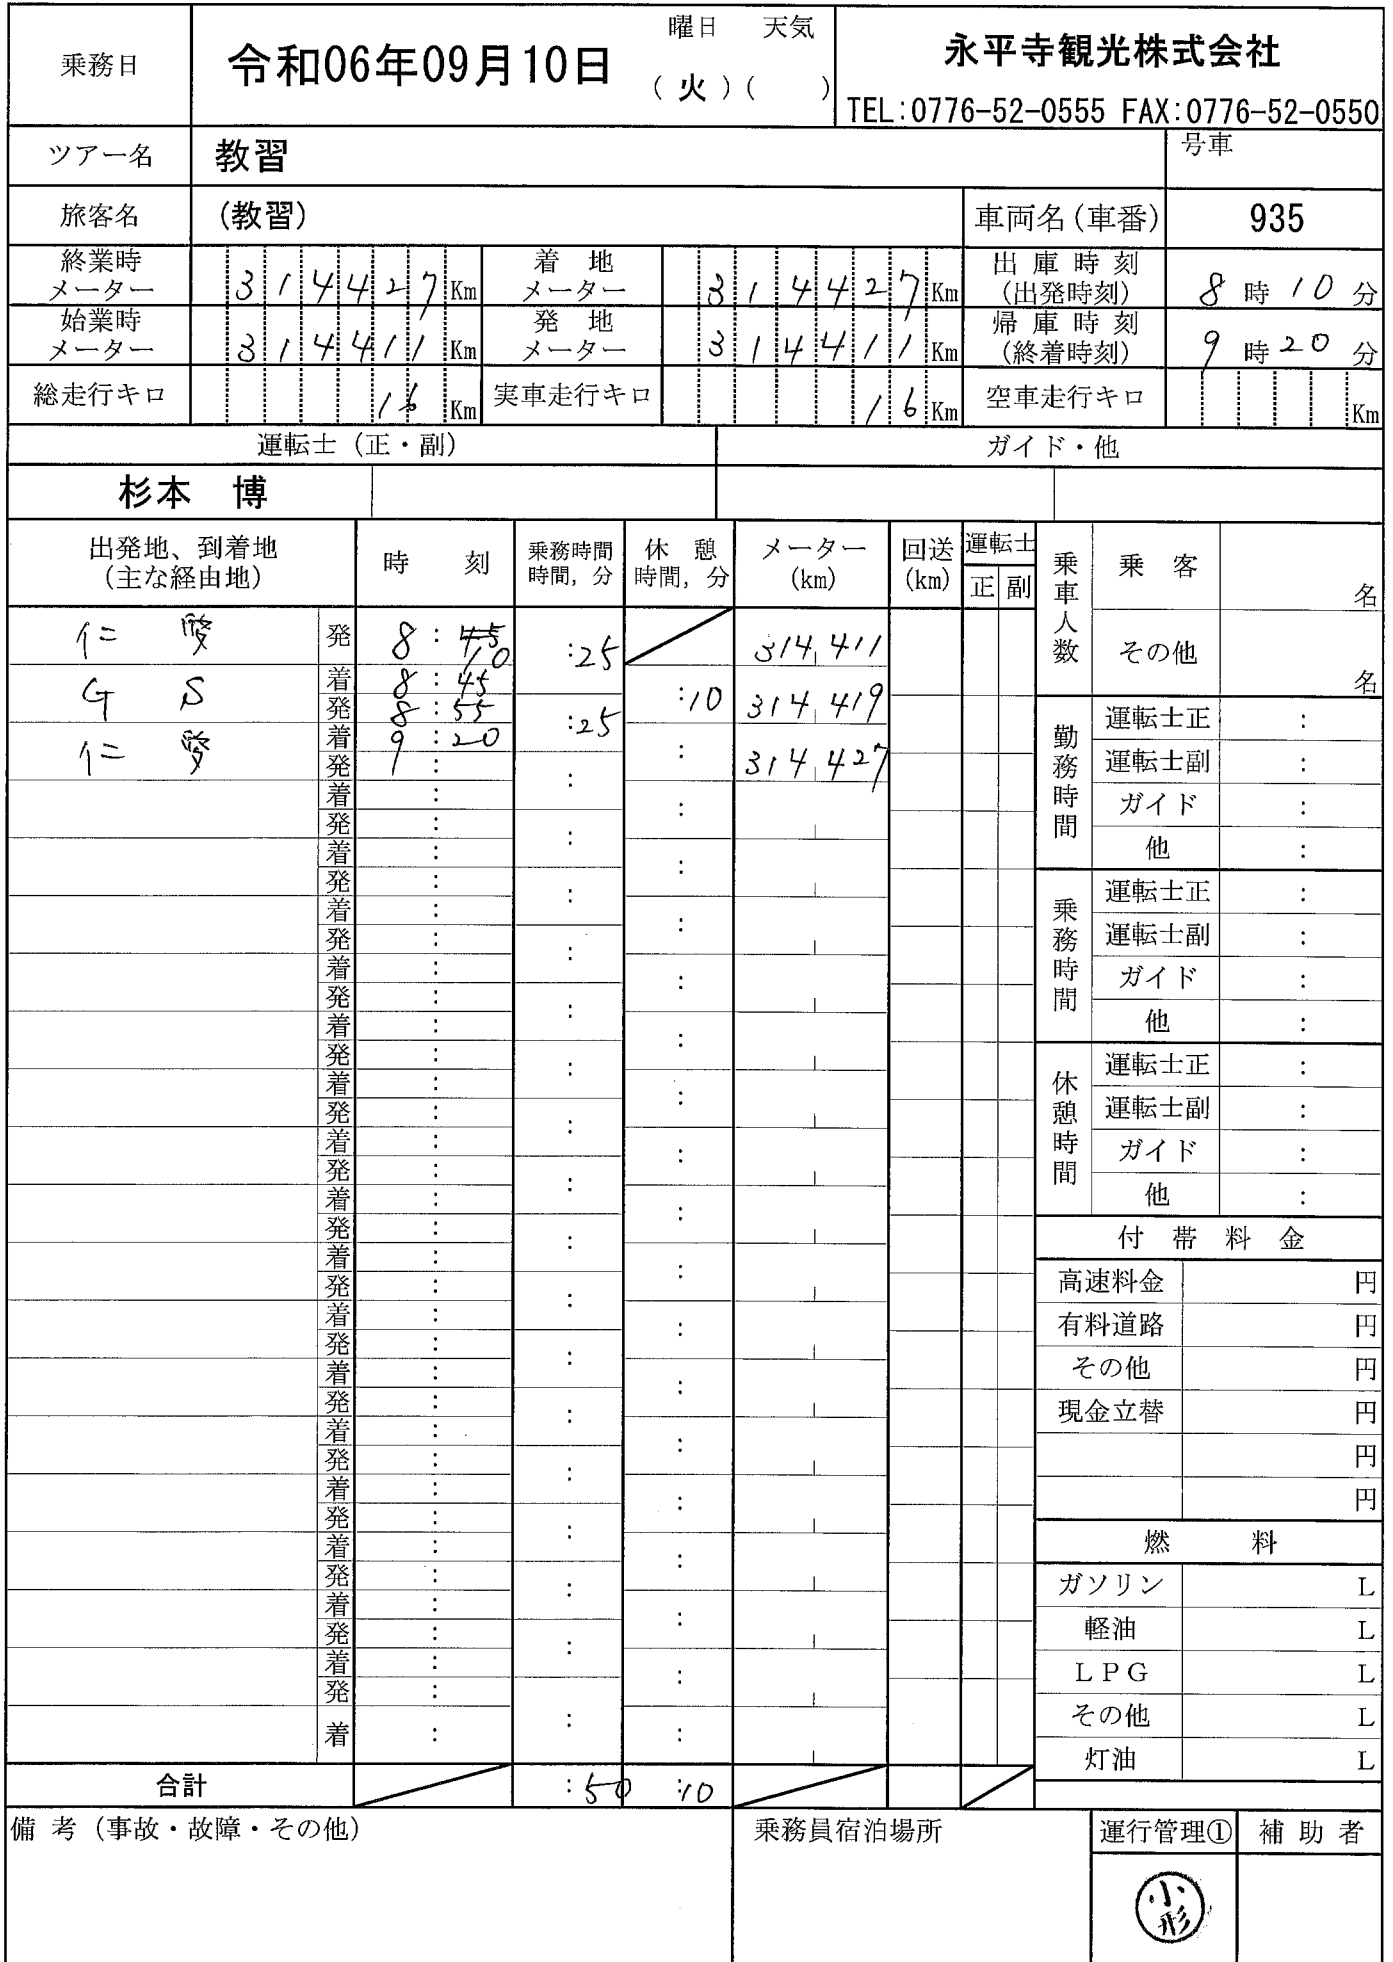 乗務日 令和06年09月10日 曜日 天気 (火)( ) 永平寺観光株式会社
TEL:0776-52-0555 FAX:0776-52-0550
ツアー名 教習 号車
旅客名 (教習) 車両名(車番) 935
終業時メーター 314427Km 着地メーター 314427Km 出庫時刻(出発時刻) 8時10分
始業時メーター 314411Km 発地メーター 314411Km 帰庫時刻(終着時刻) 9時20分
総走行キロ 16Km 実車走行キロ 16Km 空車走行キロ Km
運転士(正・副) ガイド・他
杉本 博
出発地、到着地(主な経由地) 時刻 乗務時間 時間,分 休憩 時間,分 メーター(km) 回送(km) 運転士 正 副
仁愛 発 8:45 10 :25 314,411
GS 着 8:45
発 8:55 :10 314,419
仁愛 着 9:20 :25
発 : : 314,427
着 :
発 :
着 :
発 :
着 :
発 :
着 :
発 :
着 :
発 :
着 :
発 :
着 :
発 :
着 :
発 :
着 :
発 :
着 :
発 :
着 :
発 :
着 :
発 :
着 :
発 :
着 :
発 :
着 :
発 :
着 :
発 :
着 :
合計 :50 :10
乗車人数 乗客 名
その他 名
勤務時間 運転士正 :
運転士副 :
ガイド :
他 :
乗務時間 運転士正 :
運転士副 :
ガイド :
他 :
休憩時間 運転士正 :
運転士副 :
ガイド :
他 :
付帯料金
高速料金 円
有料道路 円
その他 円
現金立替 円
円
円
燃料
ガソリン L
軽油 L
LPG L
その他 L
灯油 L
備考(事故・故障・その他) 乗務員宿泊場所 運行管理① 補助者
小形